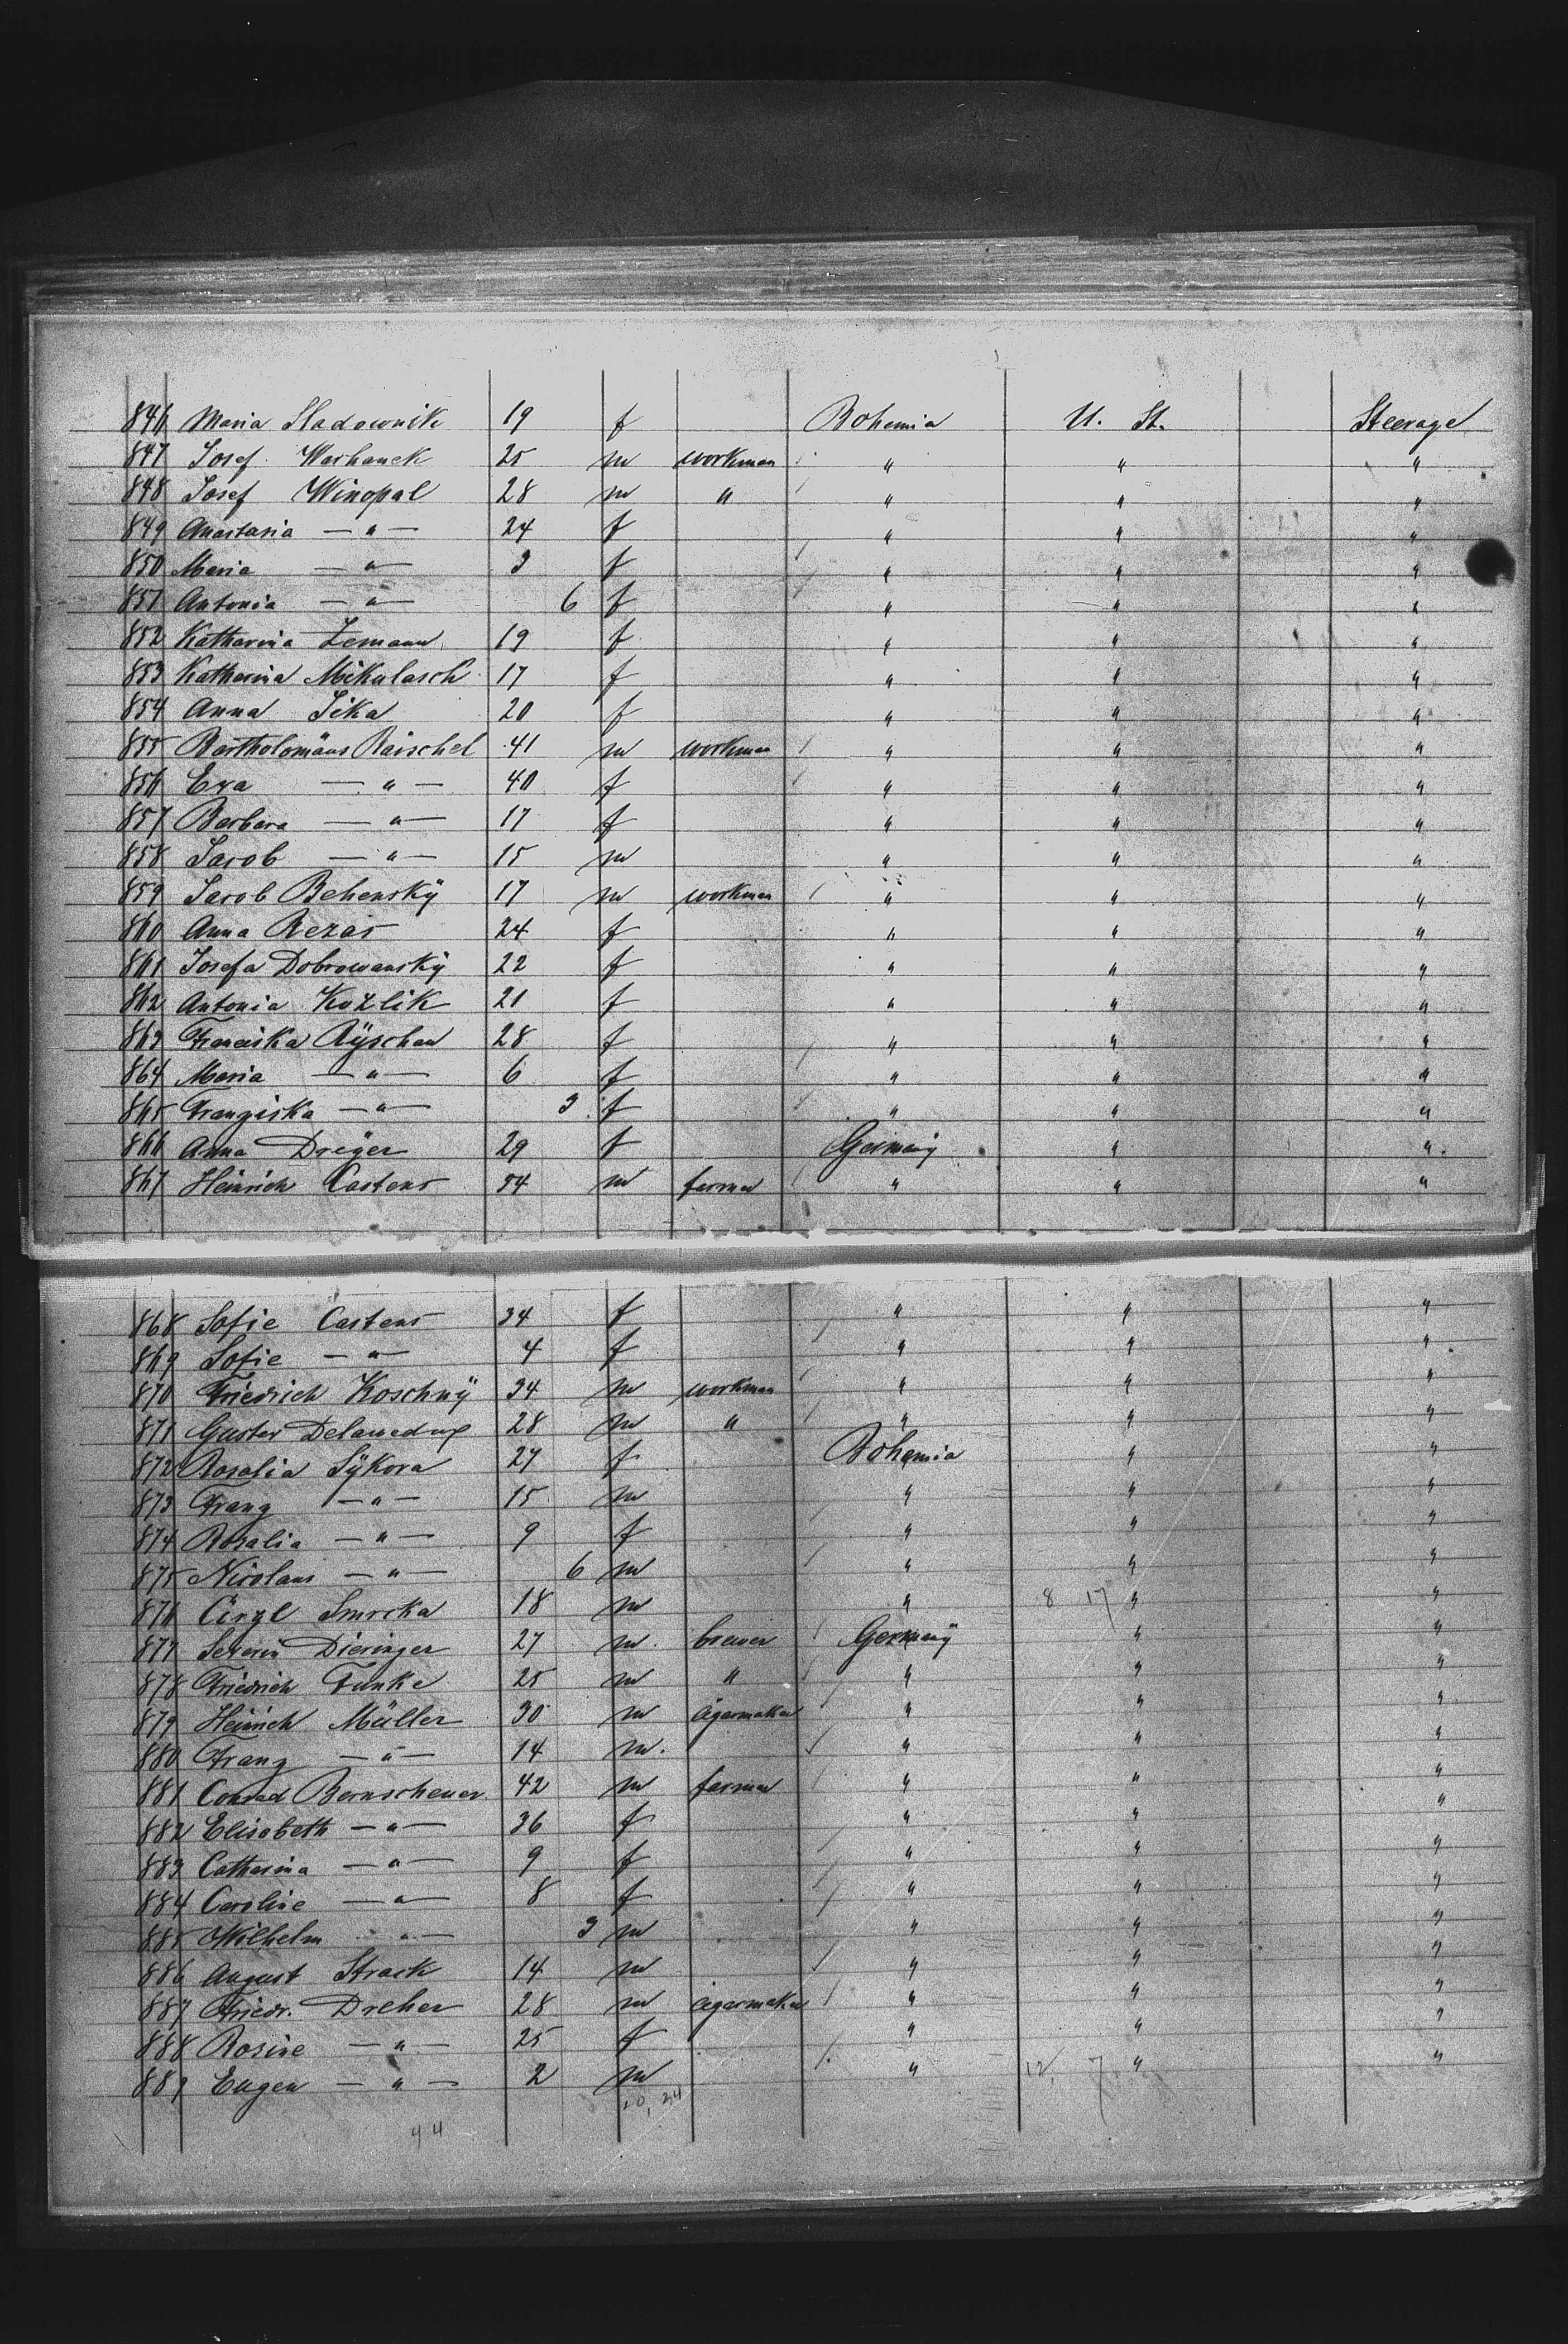 846 Maria Sladownik 19 f Bohemia U. St. Steerage
847 Josef Warhanek 25 m workman " " "
848 Josef Winopal 28 m " " " "
849 Anastasia — " — 24 f " " "
850 Maria — " — 3 f " " "
851 Antonia — " — 6 f " " "
852 Katharina Zemann 19 f " " "
853 Katharina Mikulasch 17 f " " "
854 Anna Sika 20 f " " "
855 Bartholomäus Raischel 41 m workman " " "
856 Eva — " — 40 f " " "
857 Barbara — " — 17 f " " "
858 Jacob — " — 15 m " " "
859 Jacob Behenskÿ 17 m workman " " "
860 Anna Rezas 24 f " " "
861 Josefa Dobrowanskÿ 22 f " " "
862 Antonia Kozlik 21 f " " "
863 Franciska Rÿschan 28 f " " "
864 Maria — " — 6 f " " "
865 Franziska — " — 3 f " " "
866 Anna Dreÿer 29 f Germanÿ " "
867 Heinrich Castens 54 m farmer " " "
868 Sofie Castens 34 f " " "
869 Sofie — " — 4 f " " "
870 Friedrich Koschnÿ 34 m workman " " "
871 Gustav 28 m " " " "
872 Rosalia Sÿkora 27 f Bohemia " "
873 Franz — " — 15 m " " "
874 Rosalia — " — 9 f " " "
875 Nicolaus — " — 6 m " " "
876 Cirÿl Smrcka 18 m " 8 17 " "
877 Severin Dieringer 27 m. brewer Germanÿ " "
878 Friedrich Funke 25 m " " " "
879 Heinrich Müller 30 m cigarmaker " " "
880 Franz — " — 14 m. " " "
881 Conrad Bernscheuer 42 m farmer " " "
882 Elisabeth — " — 36 f " " "
883 Catharina — " — 9 f " " "
884 Caroline — " — 8 f " " "
885 Wilhelm — " — 3 m " " "
886 August Strack 14 m " " "
887 Friedr. Dreher 28 m cigarmaker " " "
888 Rosine — " — 25 f " " "
889 Eugen — " — 2 m " 12, 7 " "
20, 24
44